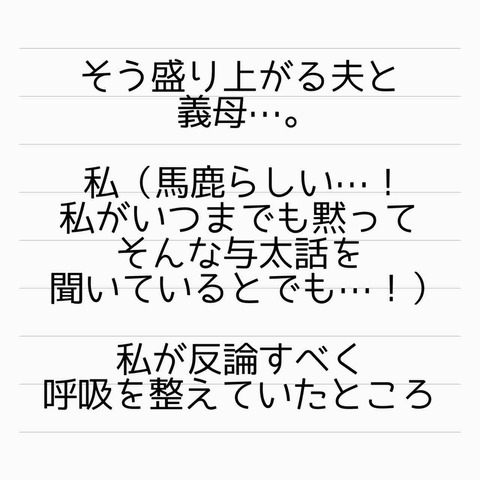 そう盛り上がる夫と
義母…。
私（馬鹿らしい…！
私がいつまでも黙って
そんな与太話を
聞いているとでも…！）
私が反論すべく
呼吸を整えていたところ